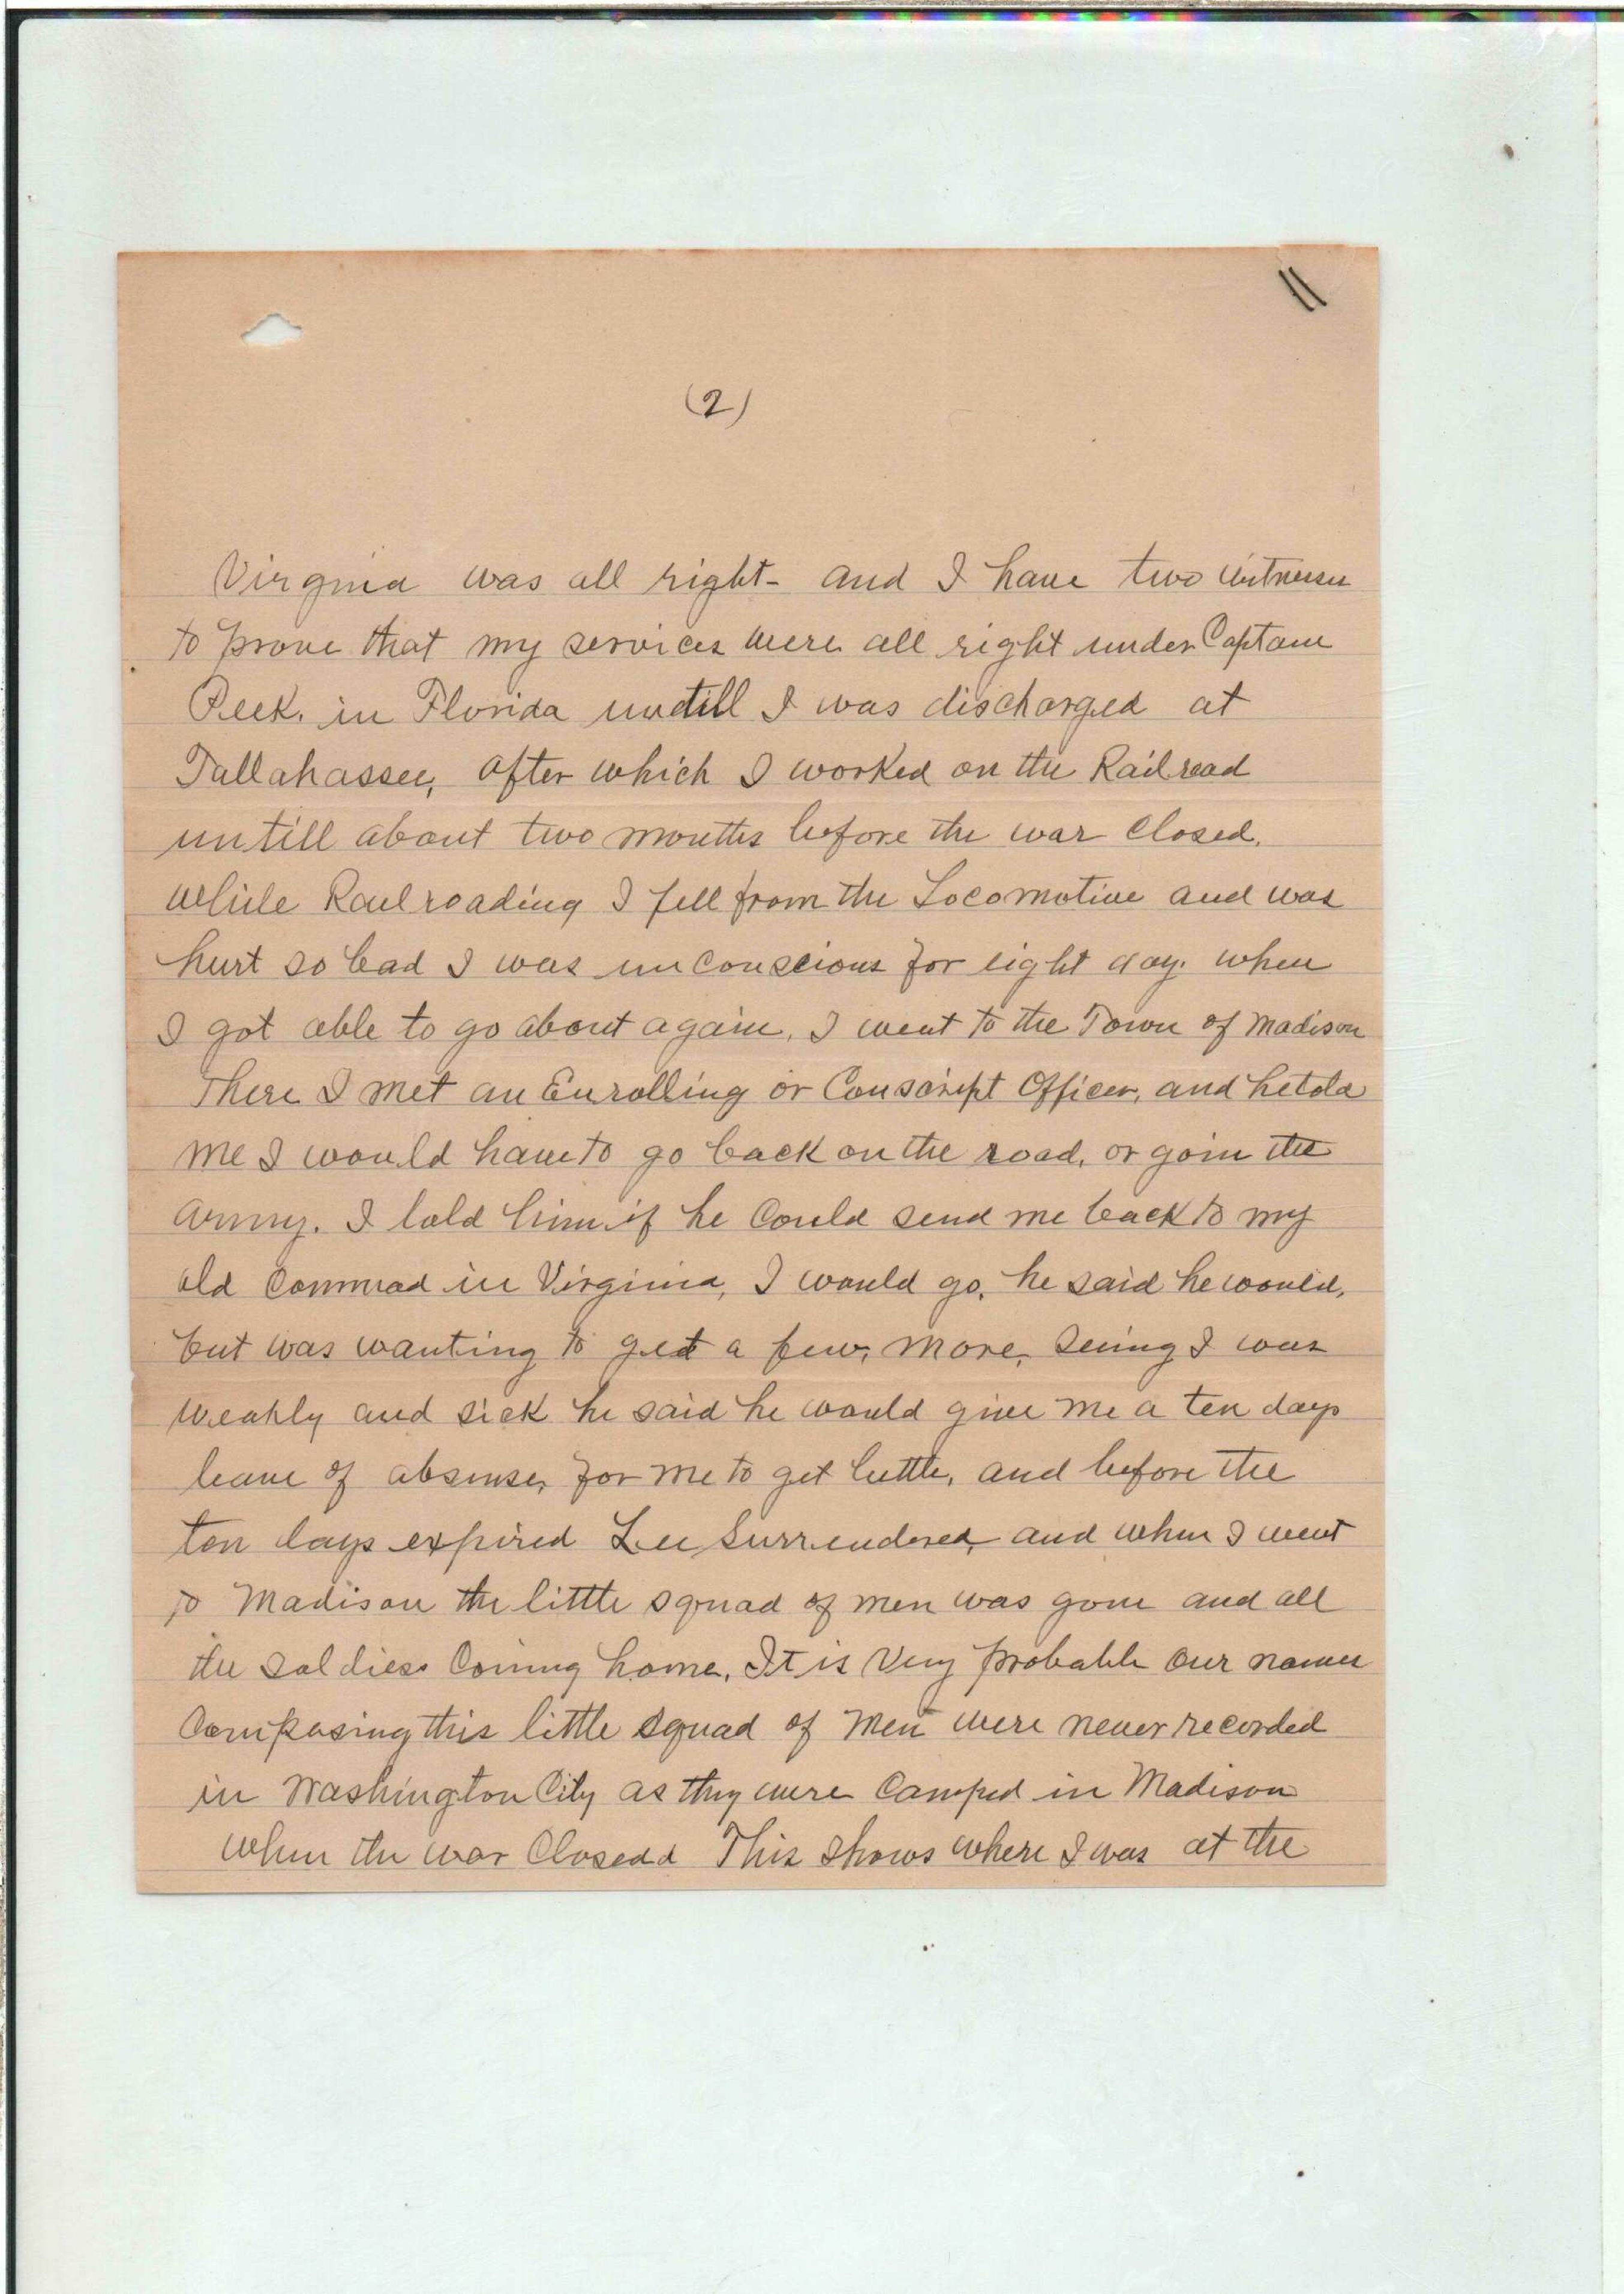 (2)
Virginia was all right- and I have two witnesses
to prove that my services were all right under Captain
Peek. in Florida untill I was discharged at
Tallahassee, after which I worked on the Railroad
untill about two months before the war closed.
while Railroading I fell from the Locomotive and was
hurt so bad I was unconscious for eight day. when
I got able to go about again, I went to the Town of Madison
There I met an Enrolling or Conscript Officer, and he told
me I would have to go back on the road, or goin the
army. I told him if he could send me back to my
old Commad in Virginia, I would go, he said he would,
but was wanting to get a few, more, seeing I was
weakly and sick he said he would give me a ten days
leave of absense, for me to get better, and before the
ten days expired Lee surrendered, and when I went
to Madison the little squad of men was gone and all
the soldiers Coming home, It is Very probable our names
Composing this little squad of men were never recorded
in Washington City as they were Camped in Madison
when the war Closed This shows where I was at the